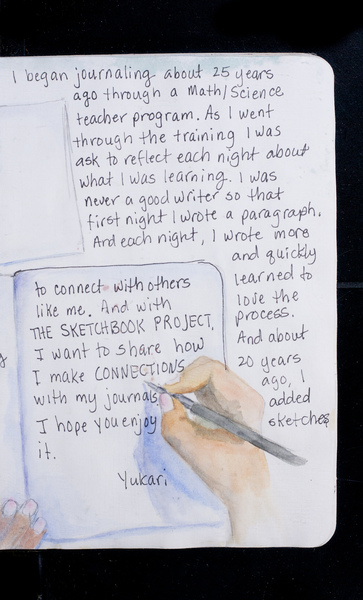 I began journaling about 25 years
ago through a Math/Science
teacher program. As I went
through the training I was
ask to reflect each night about
what I was learning. I was
never a good writer so that
first night I wrote a paragraph.
And each night, I wrote more
and quickly
learned to
love the
process.
And about
20 years
ago, I
added
sketches
to connect with others
like me. And with
THE SKETCHBOOK PROJECT,
I want to share how
I make CONNECTIONS
with my journals.
I hope you enjoy
it.
Yukari